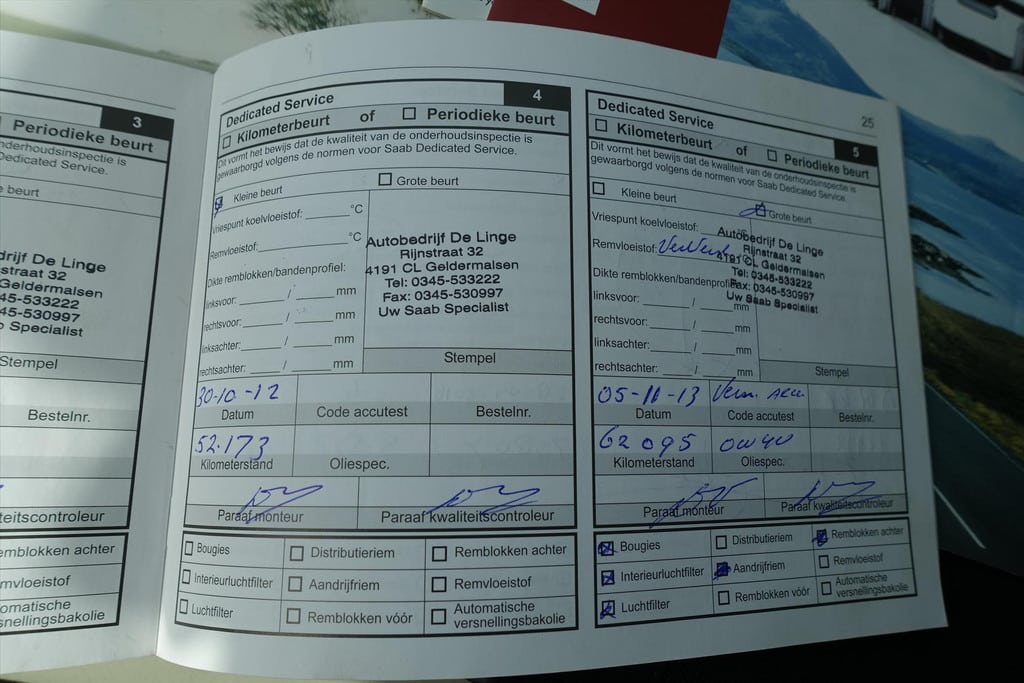 3
Periodieke beurt
onderhoudsinspectie is
Dedicated Service.
beurt
Autobedrijf De Linge
Rijnstraat 32
Geldermalsen
45-533222
45-530997
Saab Specialist
Stempel
Bestelnr.
kwaliteitscontroleur
Remblokken achter
Remvloeistof
Automatische
versnellingsbakolie
Dedicated Service
4
Kilometerbeurt of Periodieke beurt
Dit vormt het bewijs dat de kwaliteit van de onderhoudsinspectie is
gewaarborgd volgens de normen voor Saab Dedicated Service.
Kleine beurt Grote beurt
Vriespunt koelvloeistof: ______ °C
Remvloeistof: ______ °C
Autobedrijf De Linge
Rijnstraat 32
4191 CL Geldermalsen
Tel: 0345-533222
Fax: 0345-530997
Uw Saab Specialist
Dikte remblokken/bandenprofiel:
linksvoor: ______ / ______ mm
rechtsvoor: ______ / ______ mm
linksachter: ______ / ______ mm
rechtsachter: ______ / ______ mm
Stempel
30-10-12
Datum Code accutest Bestelnr.
52.173
Kilometerstand Oliespec.
Paraaf monteur Paraaf kwaliteitscontroleur
Bougies Distributieriem Remblokken achter
Interieurluchtfilter Aandrijfriem Remvloeistof
Luchtfilter Remblokken vóór Automatische
versnellingsbakolie
25
Dedicated Service
5
Kilometerbeurt of Periodieke beurt
Dit vormt het bewijs dat de kwaliteit van de onderhoudsinspectie is
gewaarborgd volgens de normen voor Saab Dedicated Service.
Kleine beurt Grote beurt
Vriespunt koelvloeistof:
Remvloeistof:
Autobedrijf De Linge
Rijnstraat 32
4191 CL Geldermalsen
Tel: 0345-533222
Fax: 0345-530997
Uw Saab Specialist
Dikte remblokken/bandenprofiel:
linksvoor: ______ / ______ mm
rechtsvoor: ______ / ______ mm
linksachter: ______ / ______ mm
rechtsachter: ______ / ______ mm
Stempel
05-11-13
Datum Code accutest Bestelnr.
62095
Kilometerstand Oliespec.
Paraaf monteur Paraaf kwaliteitscontroleur
Bougies Distributieriem Remblokken achter
Interieurluchtfilter Aandrijfriem Remvloeistof
Luchtfilter Remblokken vóór Automatische
versnellingsbakolie